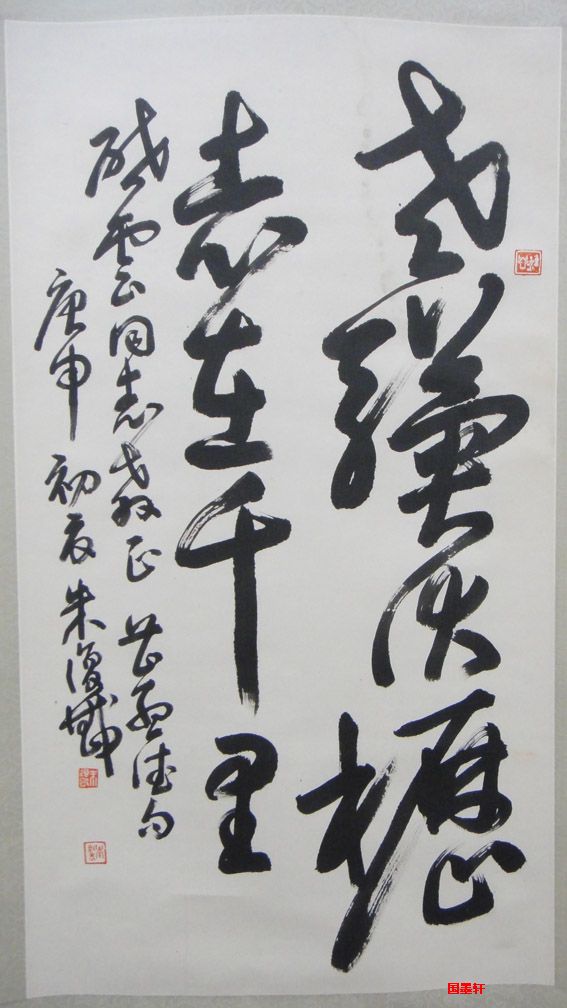 老驥伏櫪
志在千里
雲同志教正 曹孟德句
庚申初夏朱復戡
国墨轩